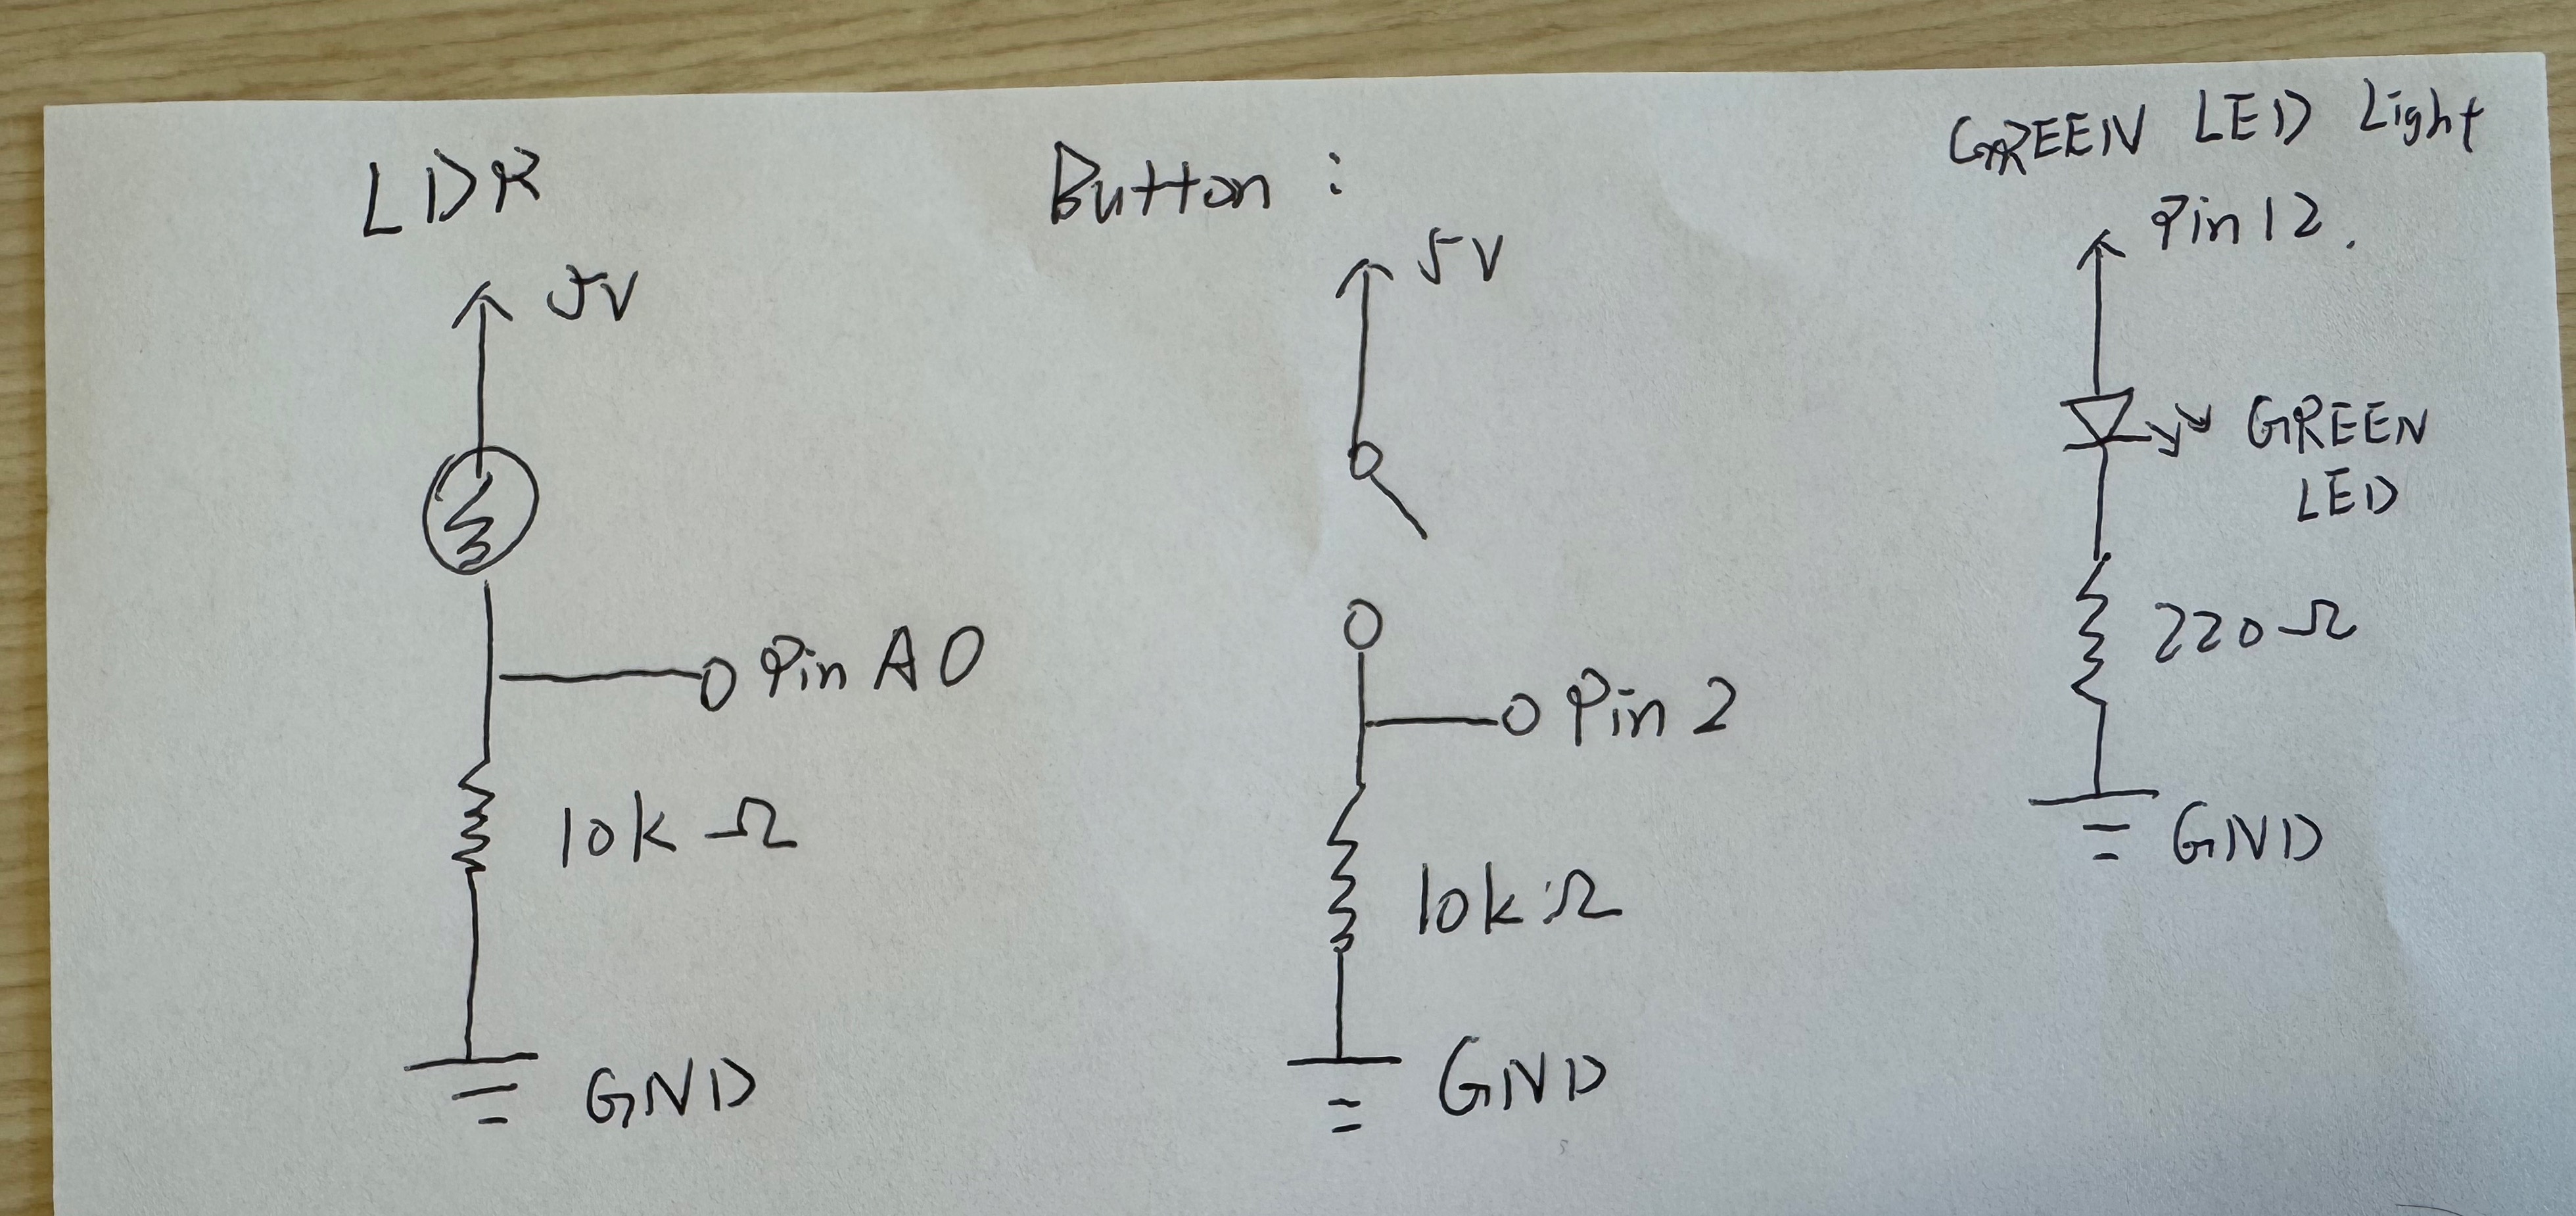 LDR
5V
Pin A0
10k Ω
GND
Button :
5V
Pin 2
10k Ω
GND
GREEN LED Light
Pin 12.
GREEN
LED
220 Ω
GND